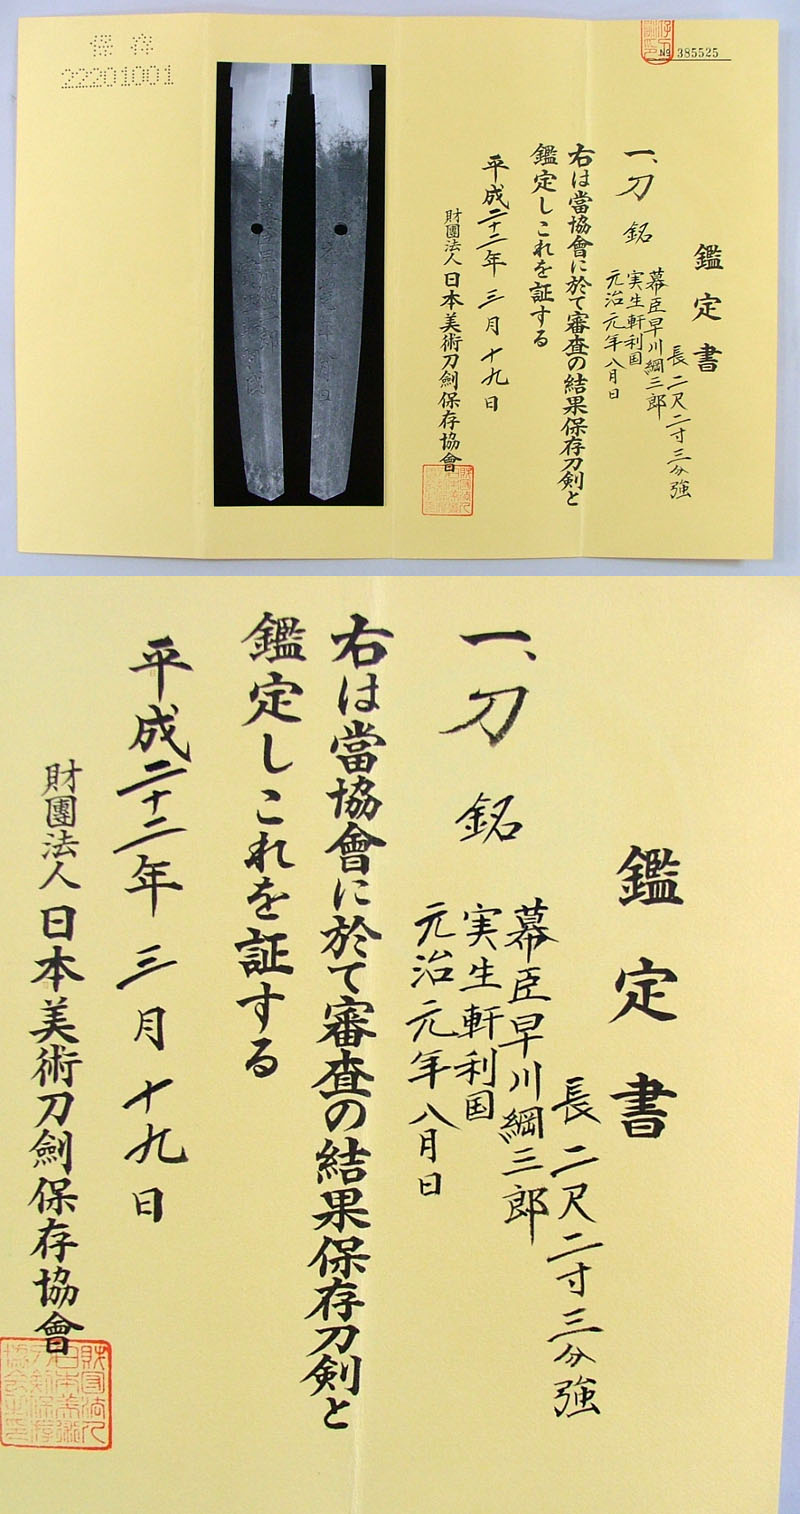 保存
22201001
No 385525
鑑定書
長 二尺二寸三分強
一、刀 銘
幕臣早川綱三郎
実生軒利国
元治元年八月日
右は當協會に於て審査の結果保存刀剣と
鑑定しこれを証する
平成二十二年 三月 十九日
財團法人 日本美術刀劍保存協會
鑑定書
長 二尺二寸三分強
一、刀 銘
幕臣早川綱三郎
実生軒利国
元治元年八月日
右は當協會に於て審査の結果保存刀剣と
鑑定しこれを証する
平成二十二年 三月 十九日
財團法人 日本美術刀劍保存協會